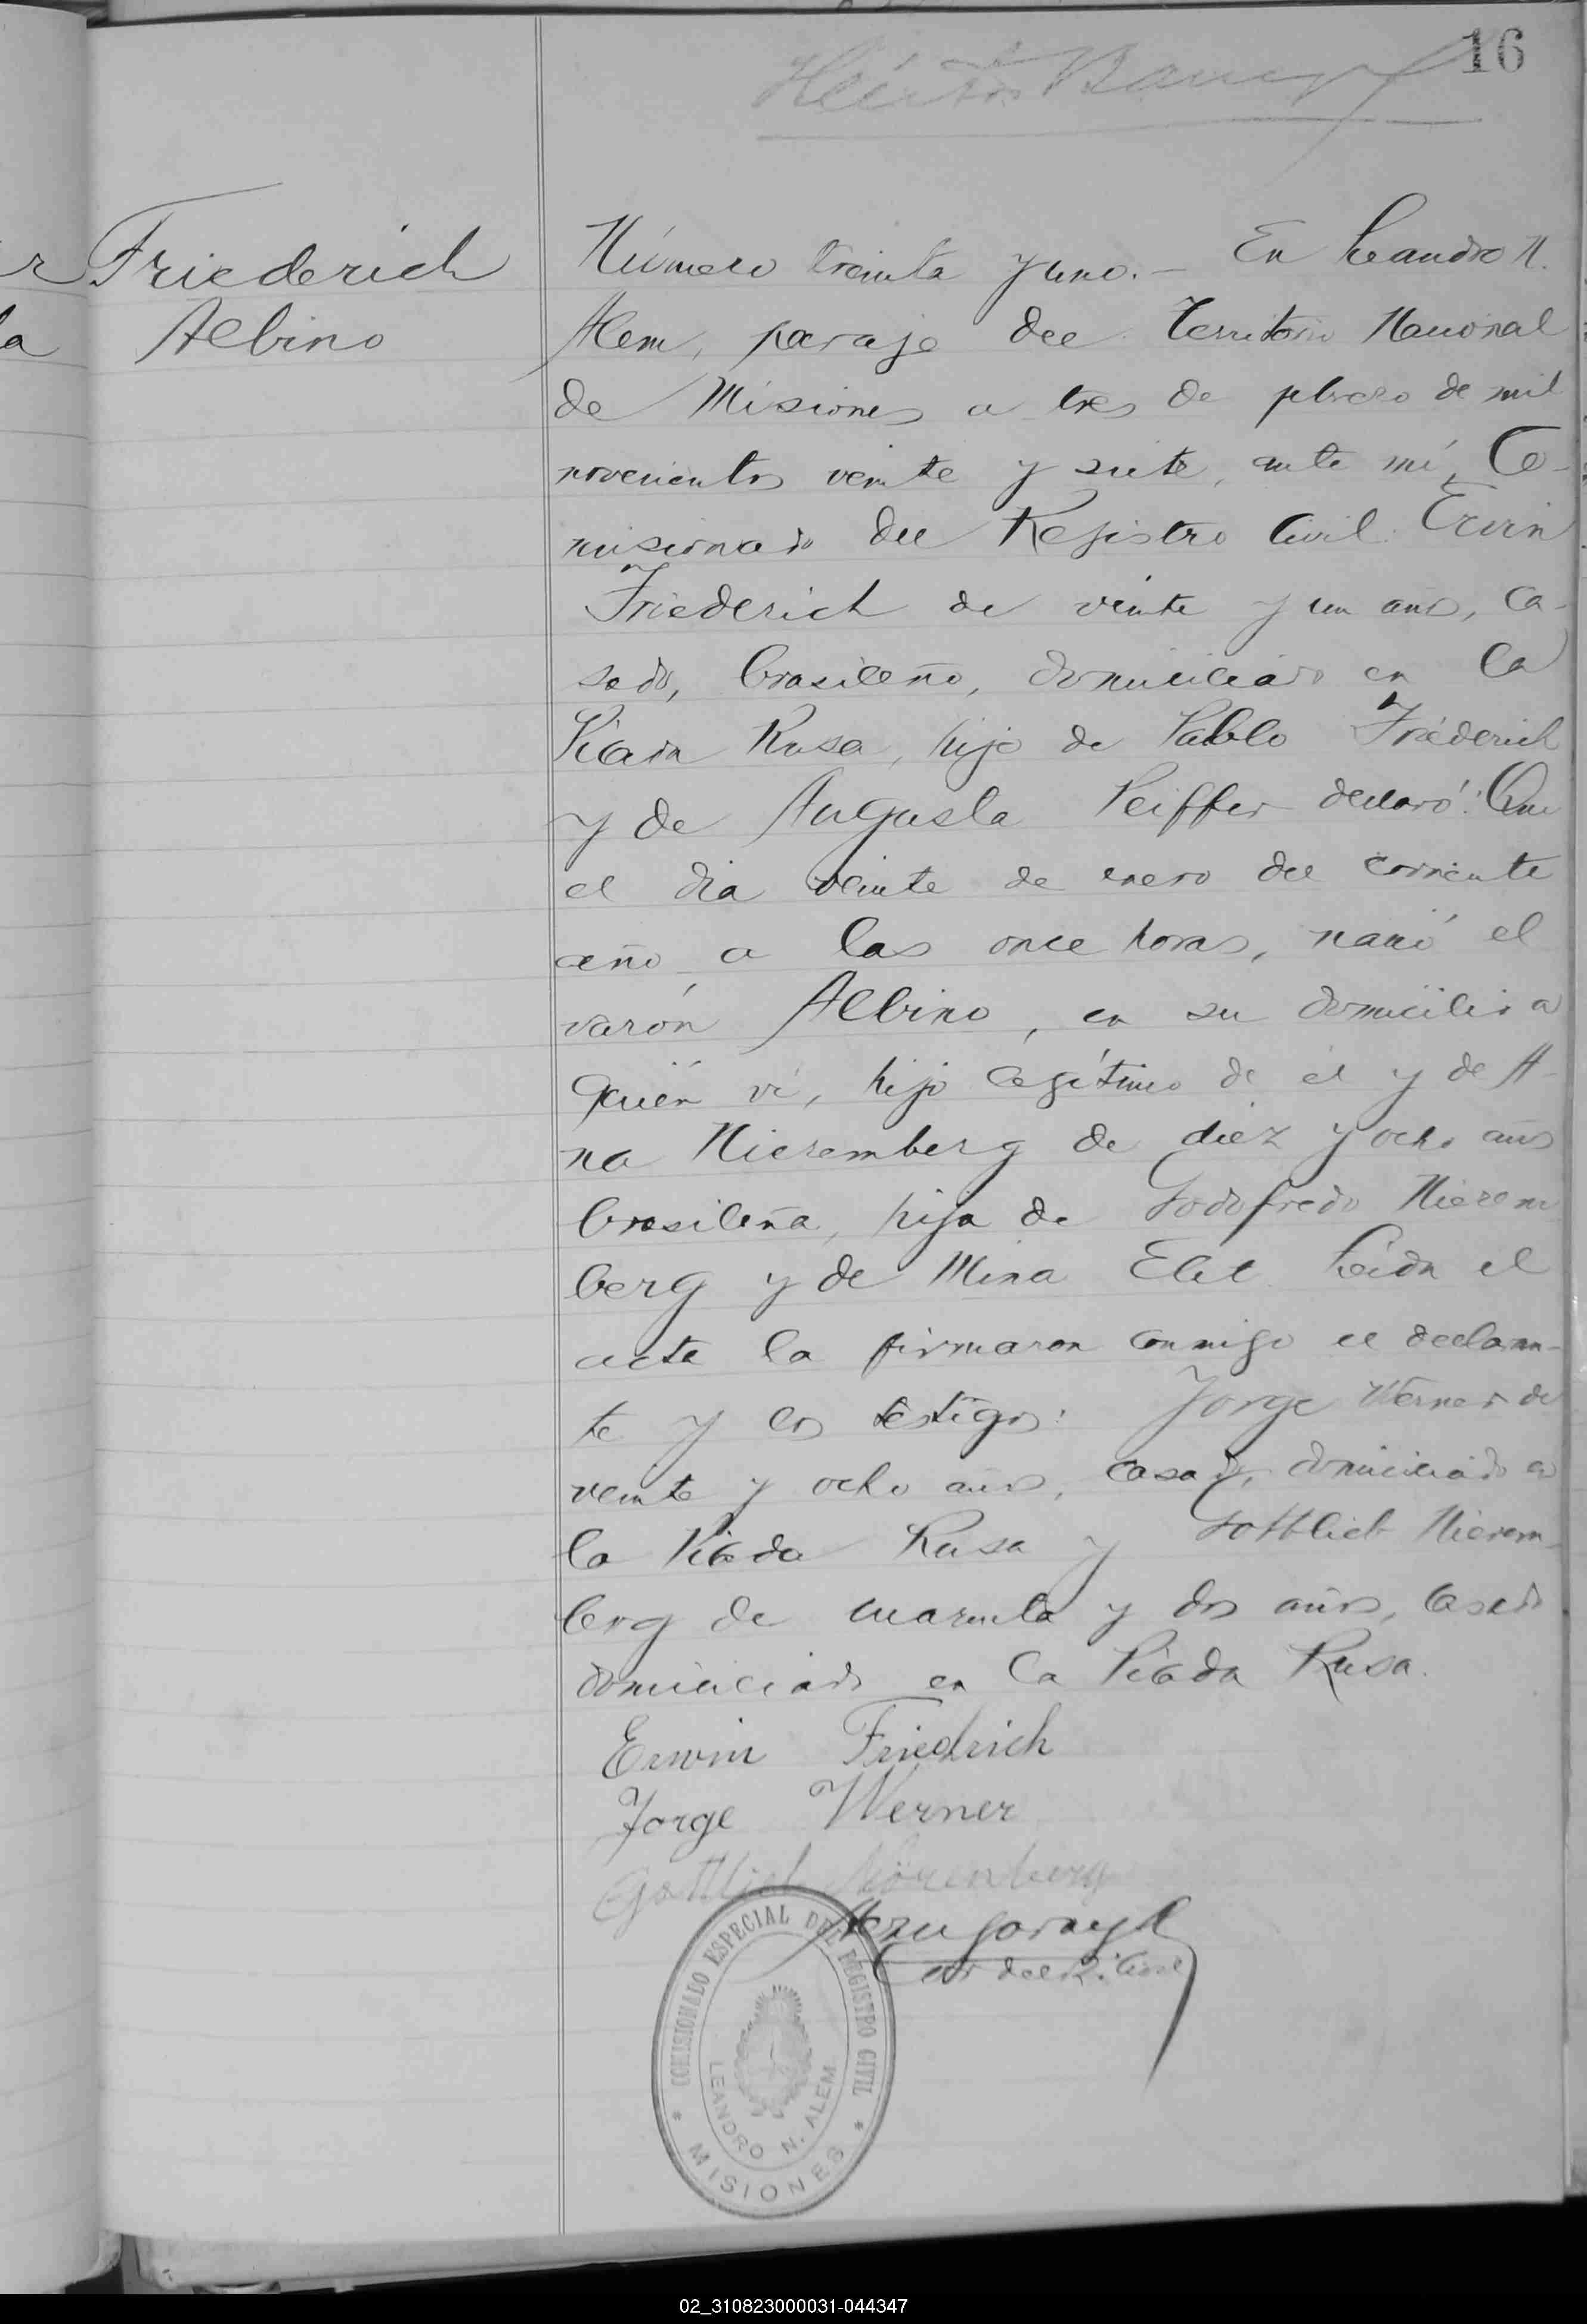 16
Friederich
Albino
Número treinta y uno.— En Leandro N.
Alem, paraje del Territorio Nacional
de Misiones a tres de febrero de mil
novecientos veinte y siete, ante mí, Co-
misionado del Registro Civil: Ervin
Friederich de veinte y un años, ca-
sado, brasileño, domiciliado en la
Picada Rusa, hijo de Pablo Friederich
y de Augusta Peiffer declaró: Que
el dia veinte de enero del corriente
año a las once horas, nació el
varón Albino, en su domicilio a
quién ví, hijo legítimo de él y de A-
na Nieremberg de diez y ocho años
brasileña, hija de Godofredo Nierem
berg y de Mina Leida el
acta la firmaron conmigo el declaran-
te y los testigos: Jorge Werner de
veinte y ocho años, casado, domiciliado en
la Picada Rusa y Gottlieb Nierem-
berg de cuarenta y dos años, casado
domiciliado en la Picada Rusa.
Erwin Friedrich
Jorge Werner
Gottlieb Nörenberg
COMISIONADO ESPECIAL DEL REGISTRO CIVIL
LEANDRO N. ALEM
* MISIONES *
02_310823000031-044347